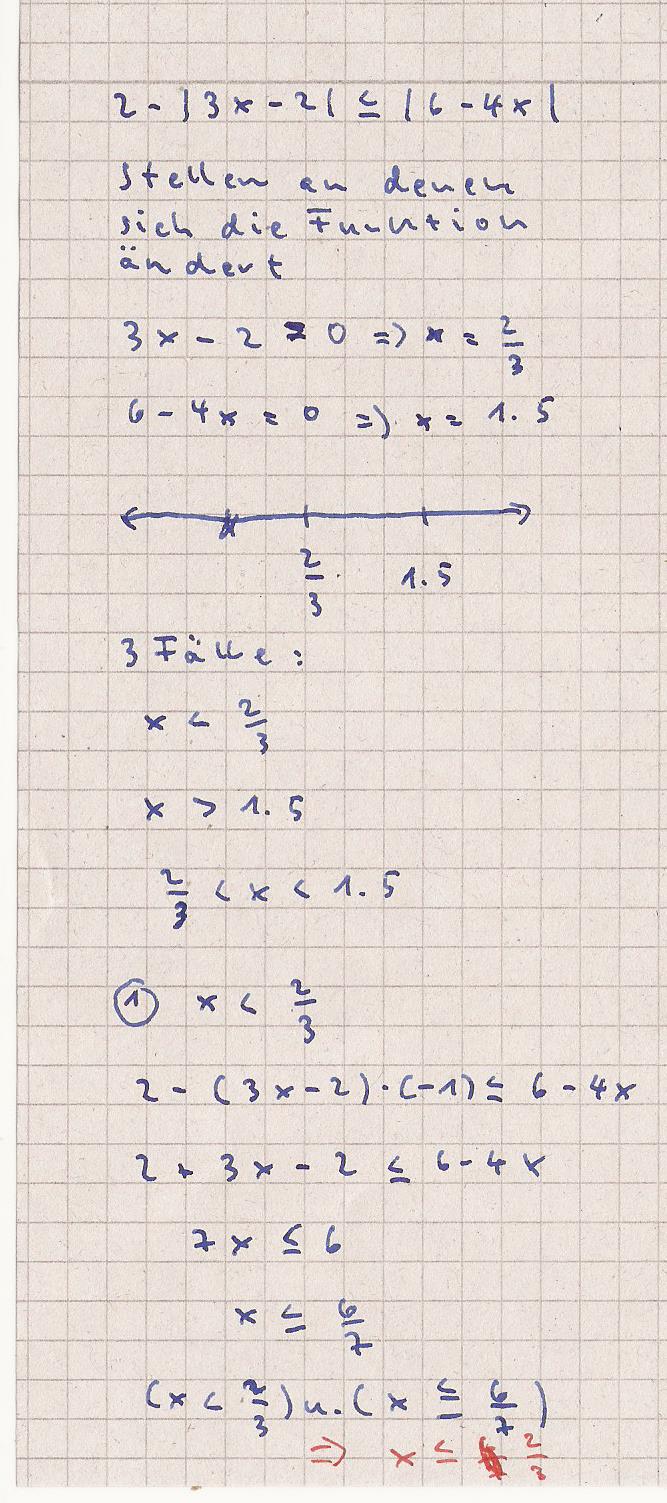 2 - |3x - 2| ≤ |6 - 4x|
stellen an denen
sich die Funktion
ändert
3x - 2 = 0 => x = 2/3
6 - 4x = 0 => x = 1.5
2/3 1.5
3 Fälle:
x < 2/3
x > 1.5
2/3 < x < 1.5
① x < 2/3
2 - (3x - 2) · (-1) ≤ 6 - 4x
2 + 3x - 2 ≤ 6 - 4x
7x ≤ 6
x ≤ 6/7
(x < 2/3) u. (x ≤ 6/7)
=> x ≤ 2/3